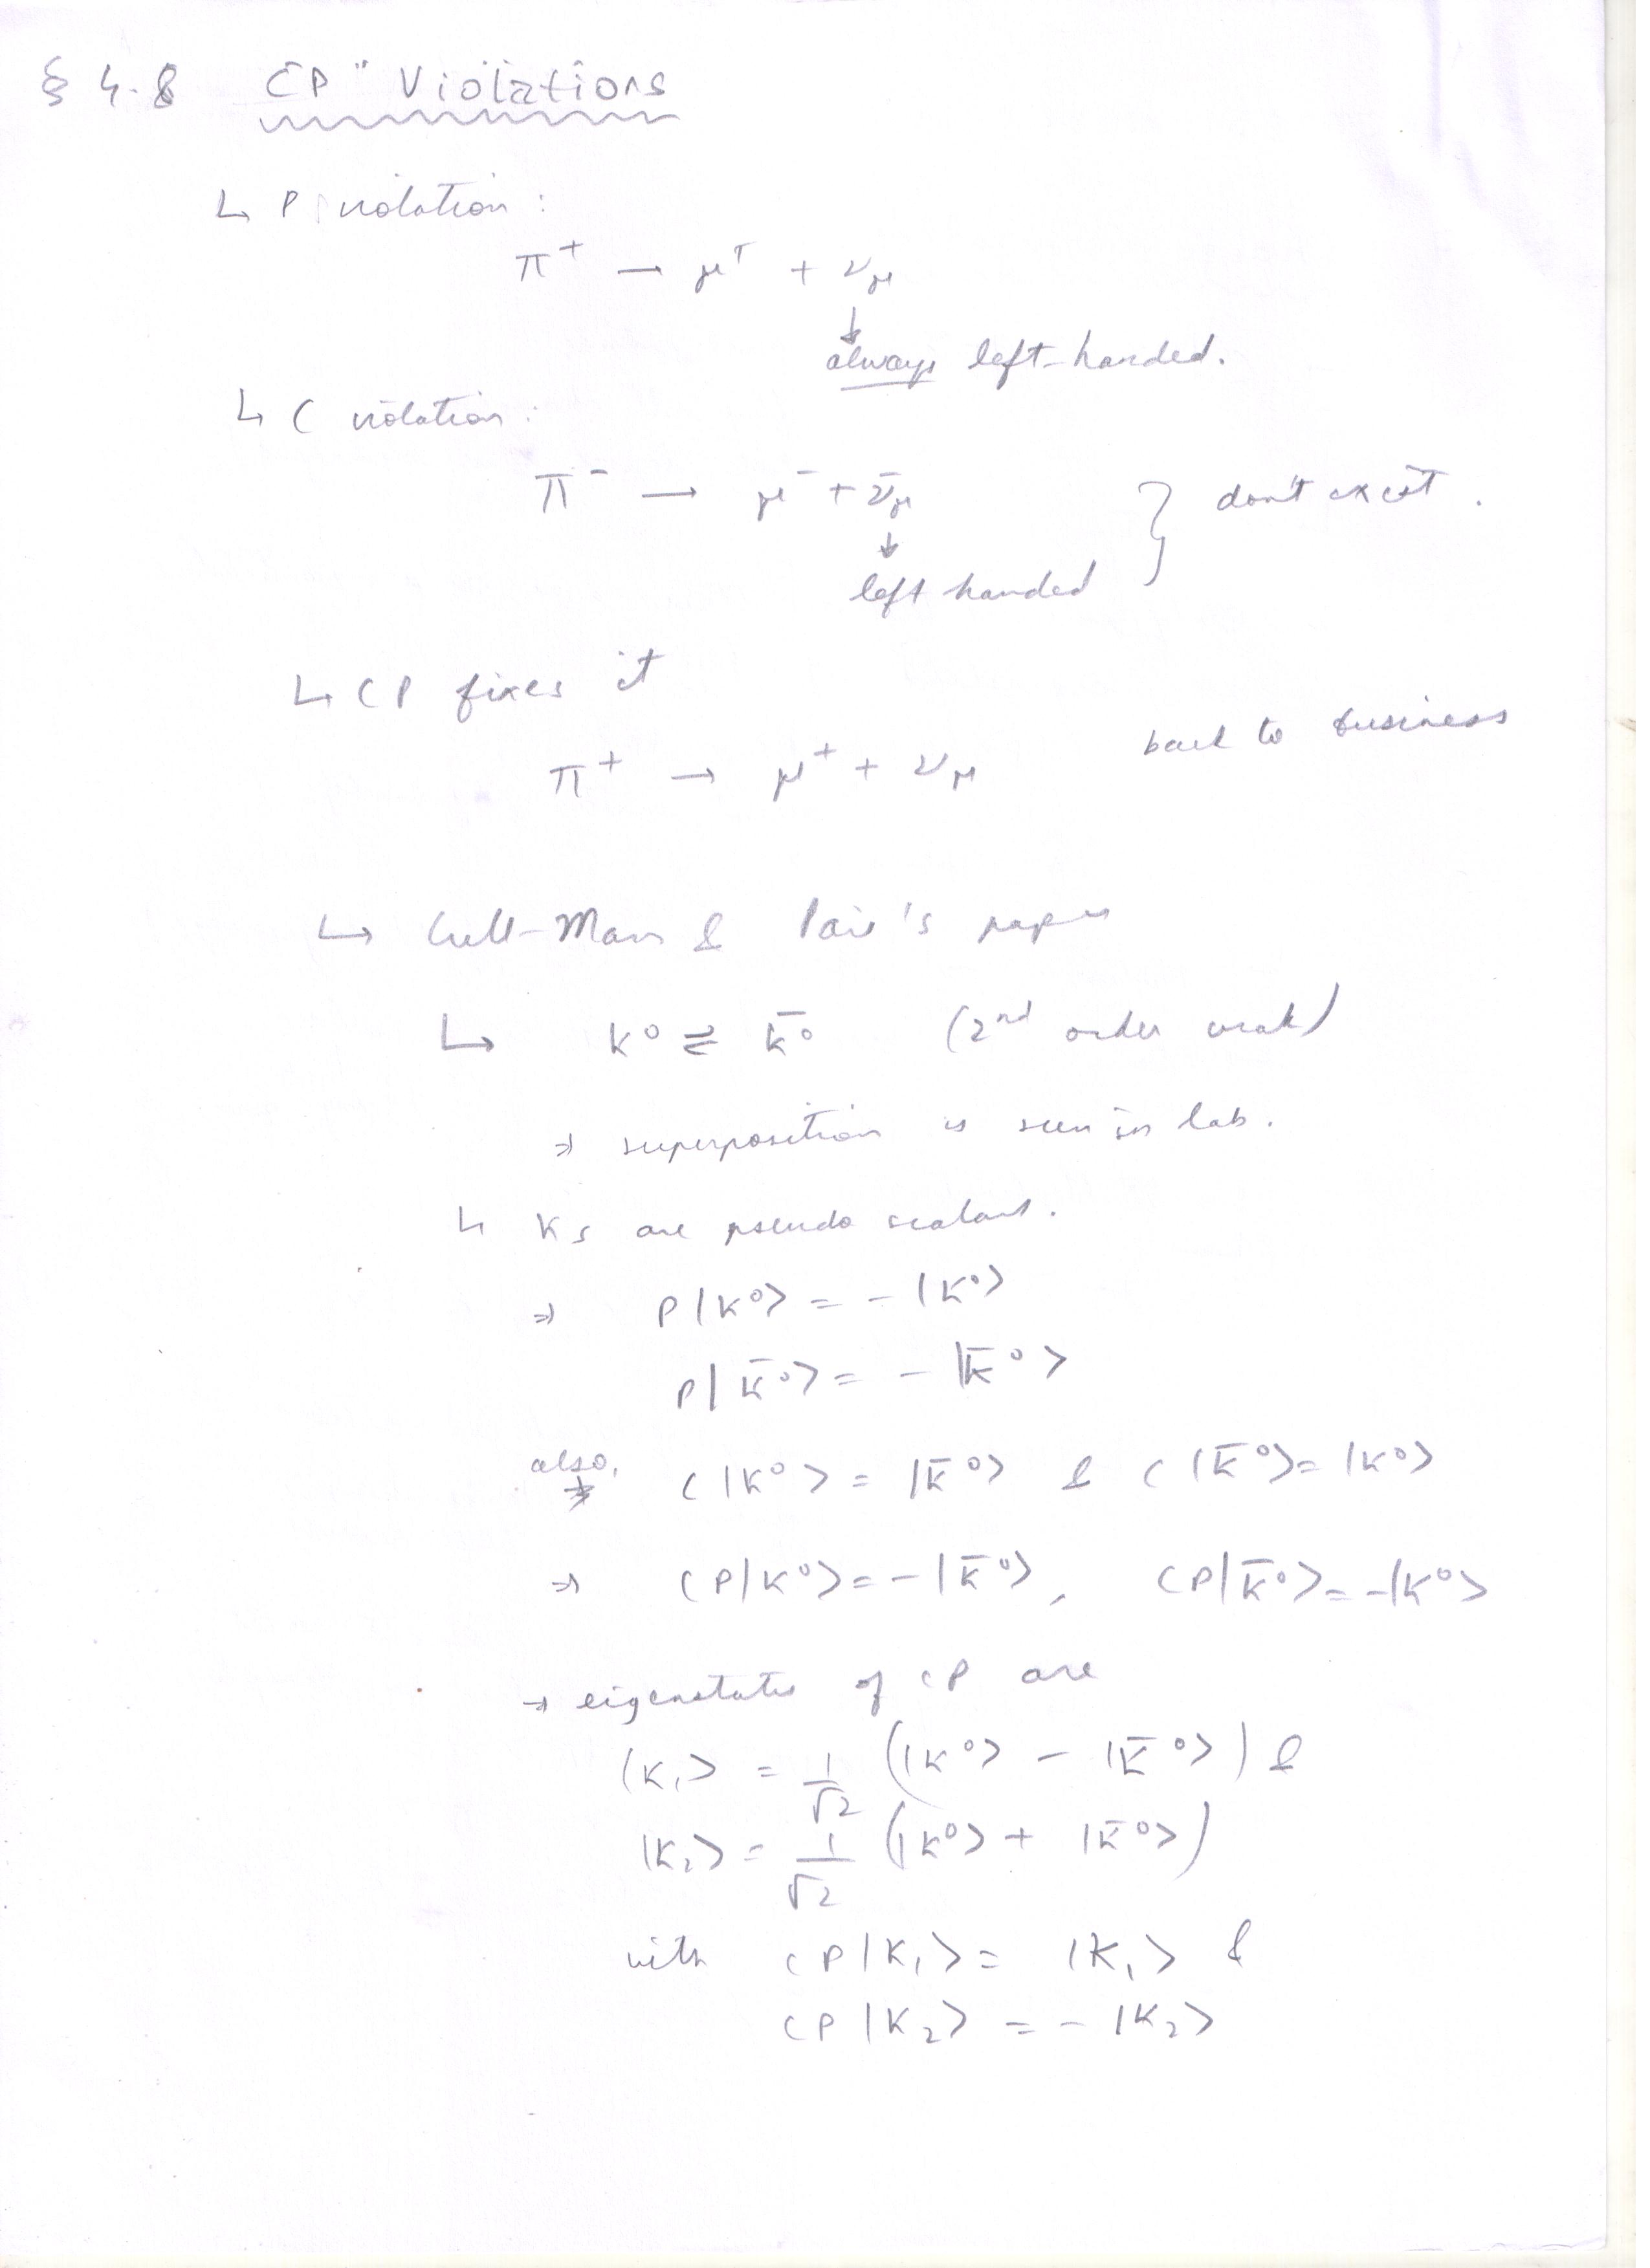 § 4.8 CP Violations
↳ P violation :
π⁺ → μ⁺ + ν_μ
↓
always left-handed.
↳ C violation :
π⁻ → μ⁻ + ν̄_μ } don't exist .
↓
left handed
↳ CP fixes it
back to business
π⁺ → μ⁺ + ν_μ
↳ Gell-Mann & Pais's paper
↳ K⁰ ⇌ K̄⁰ (2nd order weak)
⇒ superposition is seen in lab.
↳ Ks are pseudo scalars.
⇒ P|K⁰> = - |K⁰>
P|K̄⁰> = - |K̄⁰>
also, C|K⁰> = |K̄⁰> & C|K̄⁰> = |K⁰>
⇒ CP|K⁰> = -|K̄⁰>, CP|K̄⁰> = -|K⁰>
→ eigenstates of CP are
|K₁> = 1/√2 (|K⁰> - |K̄⁰>) &
|K₂> = 1/√2 (|K⁰> + |K̄⁰>)
with CP|K₁> = |K₁> &
CP|K₂> = - |K₂>